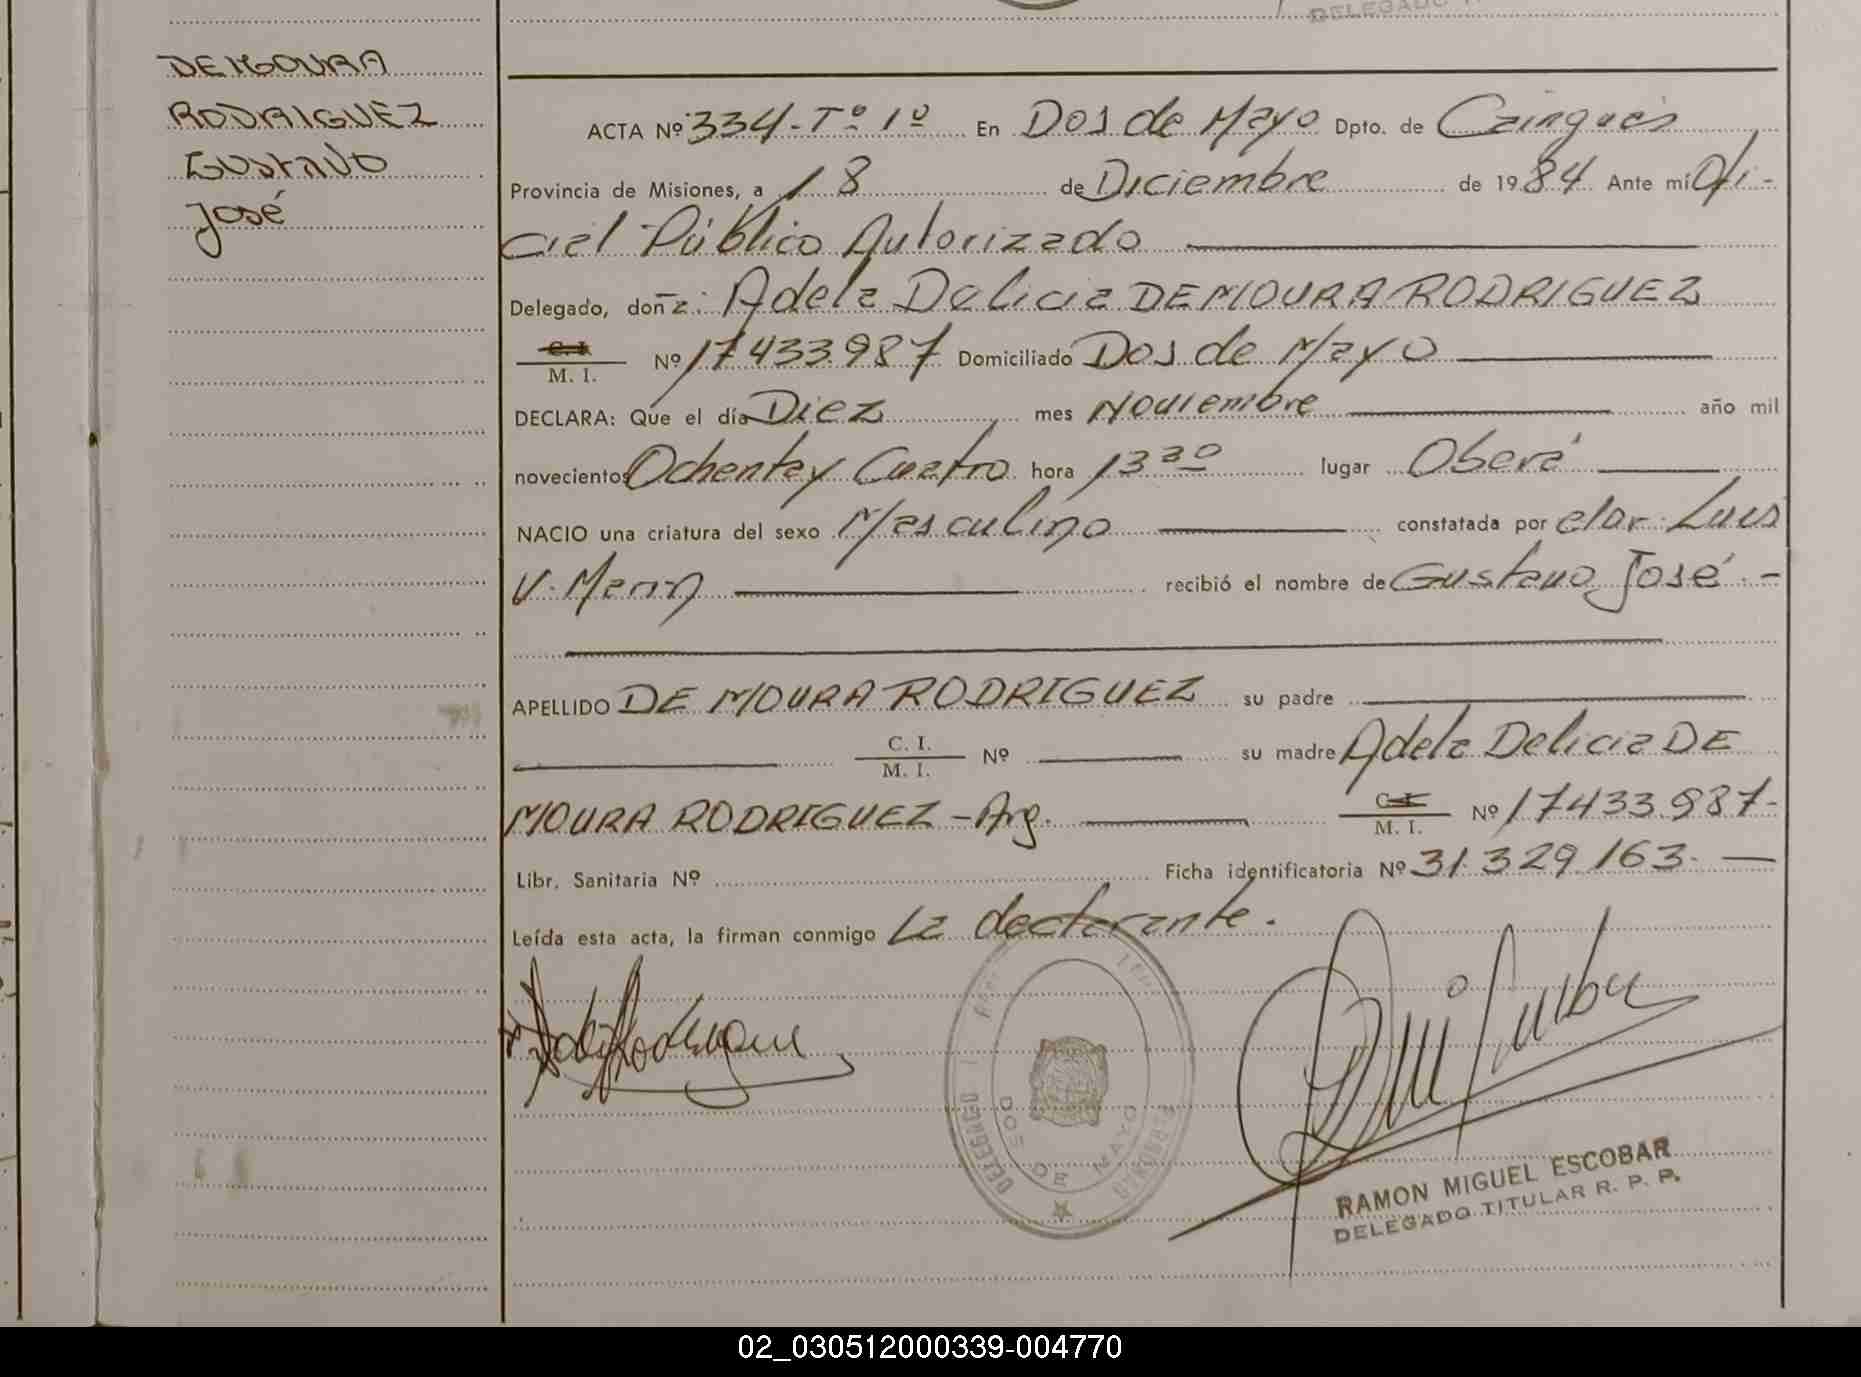 DELEGADO
DEMOURA
RODRIGUEZ
GUSTAVO
José
ACTA Nº 334-Tº 1º En Dos de Mayo Dpto. de Cainguás
Provincia de Misiones, a 18 de Diciembre de 1984 Ante mí Ofi-
cial Público Autorizado
Delegado, doña: Adela Delicia DE MOURA RODRIGUEZ
C. I. / M. I. Nº 17.433.987 Domiciliado Dos de Mayo
DECLARA: Que el día Diez mes Noviembre año mil
novecientos Ochenta y Cuatro hora 13 30 lugar Oberá
NACIO una criatura del sexo Masculino constatada por el dr. Luis
V. Marin recibió el nombre de Gustavo José.-
APELLIDO DE MOURA RODRIGUEZ su padre
C. I. / M. I. Nº su madre Adela Delicia DE
MOURA RODRIGUEZ - Arg. C. I. / M. I. Nº 17.433.987-
Libr. Sanitaria Nº Ficha identificatoria Nº 31.329.163.-
Leída esta acta, la firman conmigo La declarante.
DOS DE MAYO
RAMON MIGUEL ESCOBAR
DELEGADO TITULAR R. P. P.
02_030512000339-004770